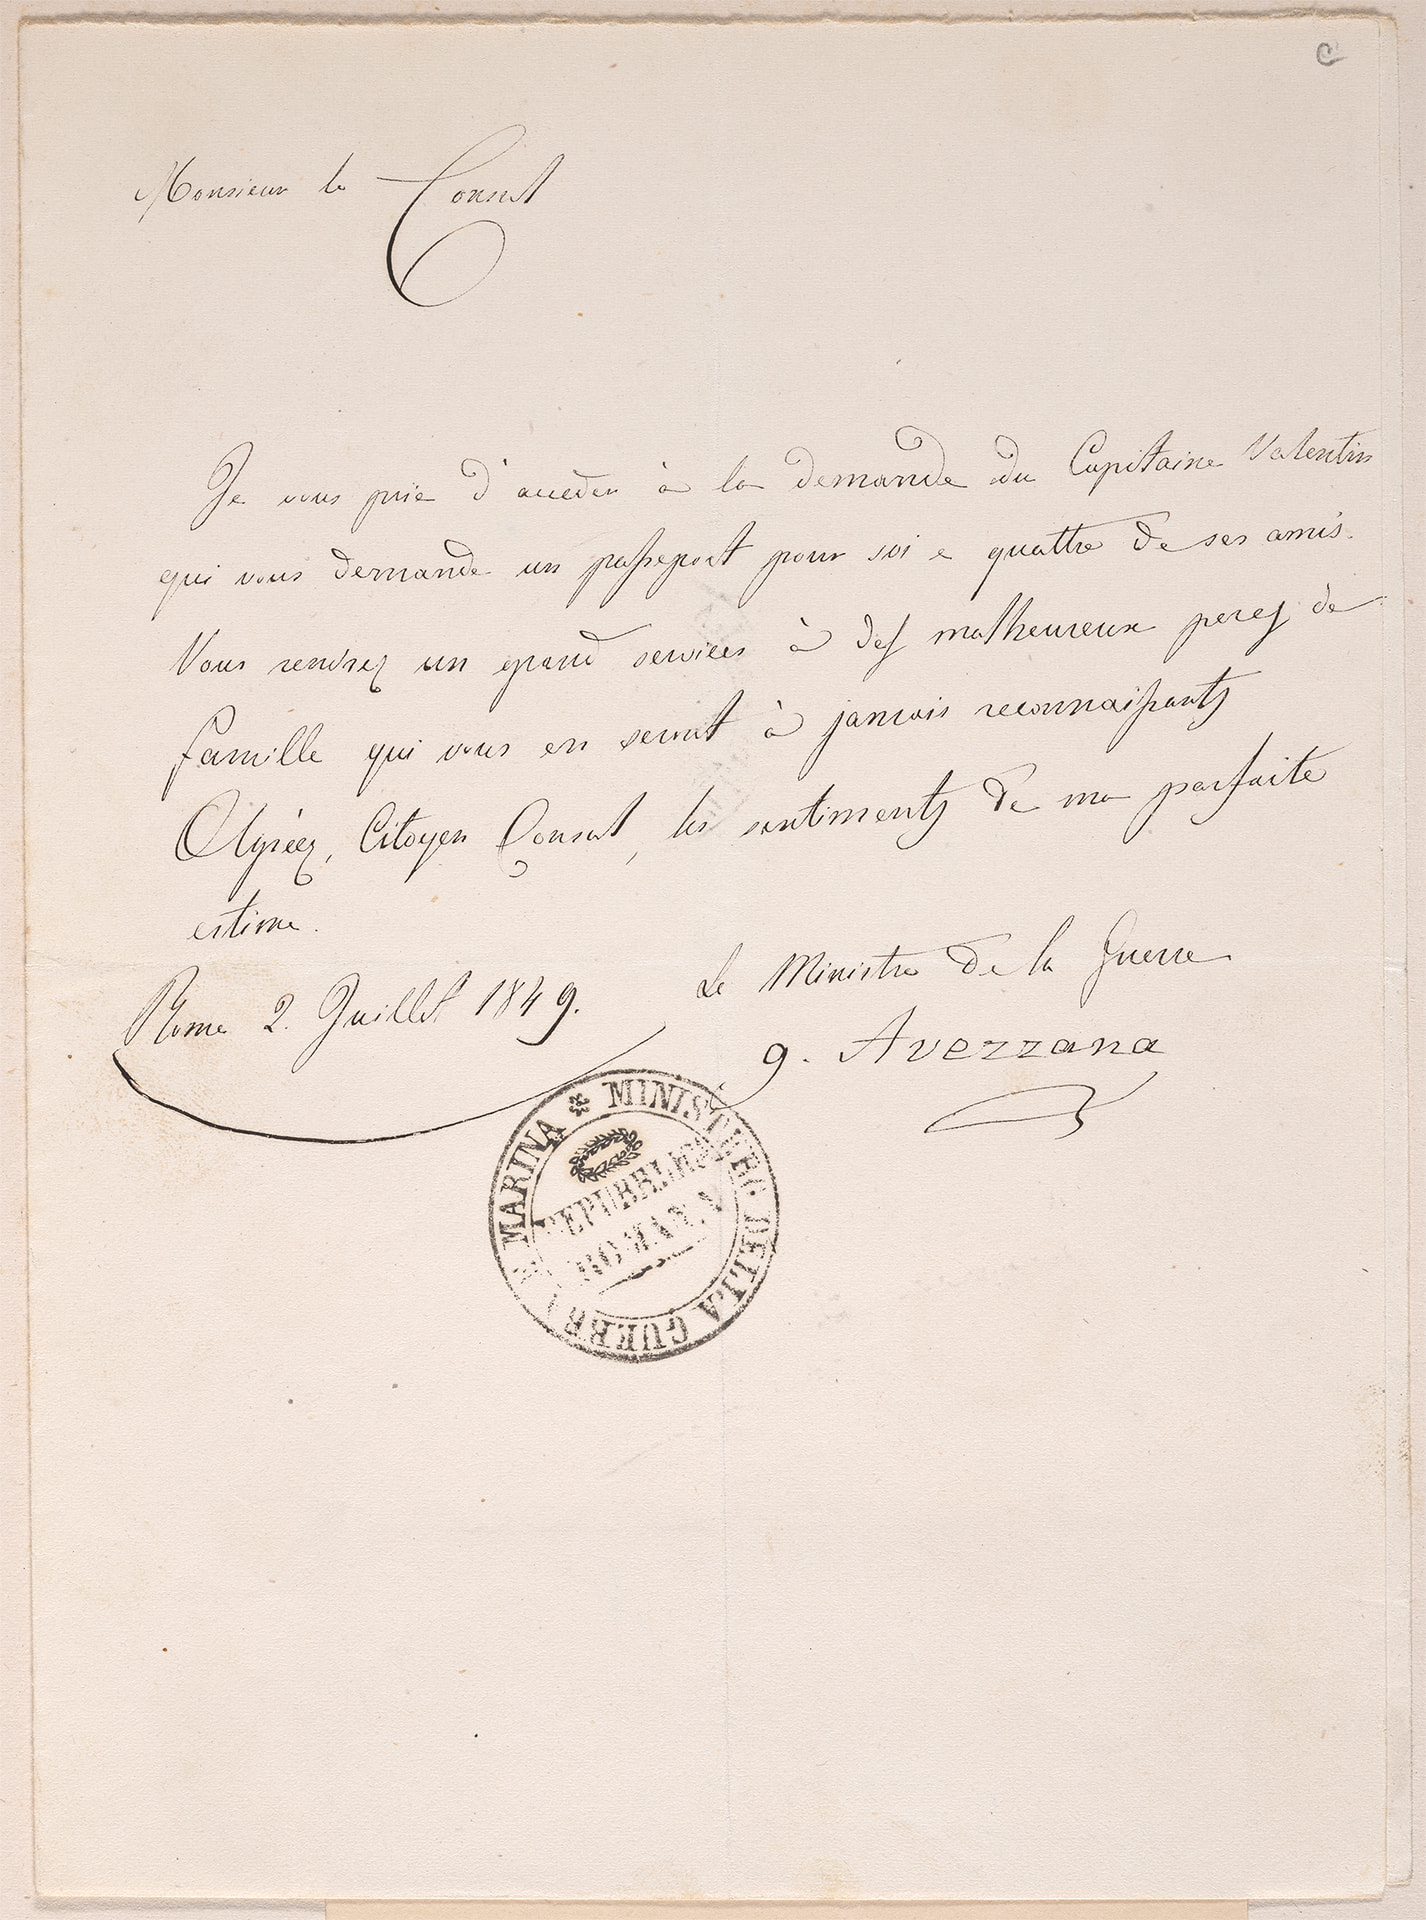 C
Monsieur le Consul
Je vous prie d'acceder à la demande du Capitaine Valentin
qui vous demande un passeport pour soi e quattre de ses amis.
Vous rendrez un grand services à des malheureux peres de
famille qui vous en seront à jamais reconnaissants
Agréez, Citoyen Consul, les sentiments de ma parfaite
estime.
Rome 2. Juillet 1849.
Le Ministre de la Guerre
G. Avezzana
MINISTERO DELLA GUERRA E MARINA
REPUBBLICA
ROMANA